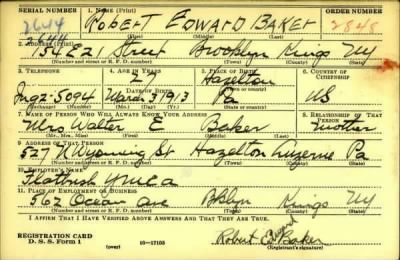 SERIAL NUMBER 1. NAME (Print) ORDER NUMBER
2644 ROBERT EDWARD BAKER 2848
(First) (Middle) (Last)
2644
2. ADDRESS (Print)
154 E 21 Street Brooklyn Kings NY
(Number and street or R. F. D. number) (Town) (County) (State)
3. TELEPHONE 4. AGE IN YEARS 5. PLACE OF BIRTH 6. COUNTRY OF CITIZENSHIP
27 Hazelton
DATE OF BIRTH
5094 March 7 1913 Pa US
(Exchange) (Number) (Mo.) (Day) (Yr.) (Town or county) (State or country)
7. NAME OF PERSON WHO WILL ALWAYS KNOW YOUR ADDRESS 8. RELATIONSHIP OF THAT PERSON
Mrs Walter E Baker Mother
(Mr., Mrs., Miss) (First) (Middle) (Last)
9. ADDRESS OF THAT PERSON
527 N Wyoming St Hazelton Luzerne Pa
(Number and street or R. F. D. number) (Town) (County) (State)
10. EMPLOYER'S NAME
Flatbush YMCA
11. PLACE OF EMPLOYMENT OR BUSINESS
562 Ocean Ave Bklyn Kings NY
(Number and street or R. F. D. number) (Town) (County) (State)
I AFFIRM THAT I HAVE VERIFIED ABOVE ANSWERS AND THAT THEY ARE TRUE.
REGISTRATION CARD
D. S. S. Form 1 (over) 16—17105 Robert E Baker
(Registrant's signature)